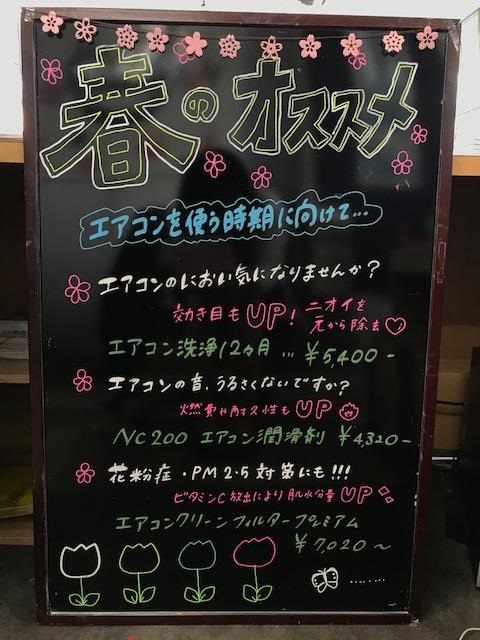 春のオススメ
エアコンを使う時期に向けて...
エアコンのにおい気になりませんか?
効き目もUP! ニオイを
元から除去♡
エアコン洗浄12ヵ月 ... ¥5,400-
エアコンの音、うるさくないですか?
燃費や耐久性もUP
NC200 エアコン潤滑剤 ¥4,320-
花粉症・PM2.5対策にも!!!
ビタミンC放出により肌水分量UP
エアコンクリーンフィルタープレミアム
¥7,020~